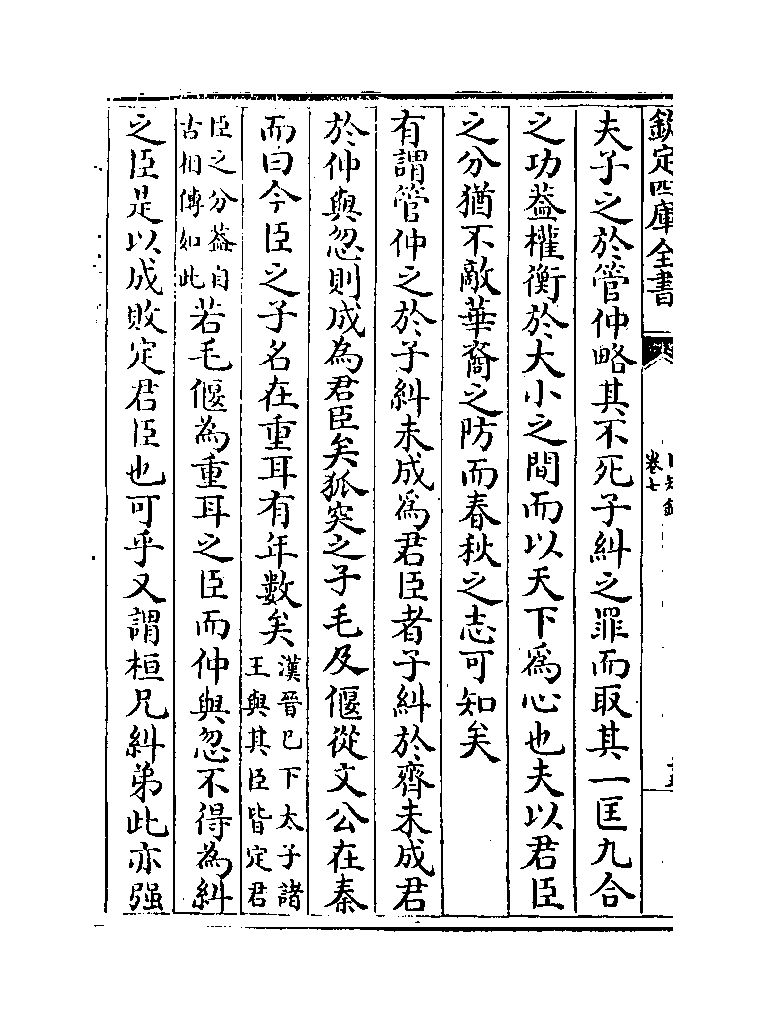 欽定四庫全書
卷七
夫子之於管仲略其不死子糾之罪而取其一匡九合
之功葢權衡於大小之間而以天下爲心也夫以君臣
之分猶不敵華裔之防而春秋之志可知矣
有謂管仲之於子糾未成爲君臣者子糾於齊未成君
於仲與忽則成為君臣矣狐突之子毛及偃從文公在秦
而曰今臣之子名在重耳有年數矣漢晉已下太子諸
王與其臣皆定君
臣之分葢自
古相傳如此若毛偃為重耳之臣而仲與忽不得為糾
之臣是以成敗定君臣也可乎又謂桓兄糾弟此亦强